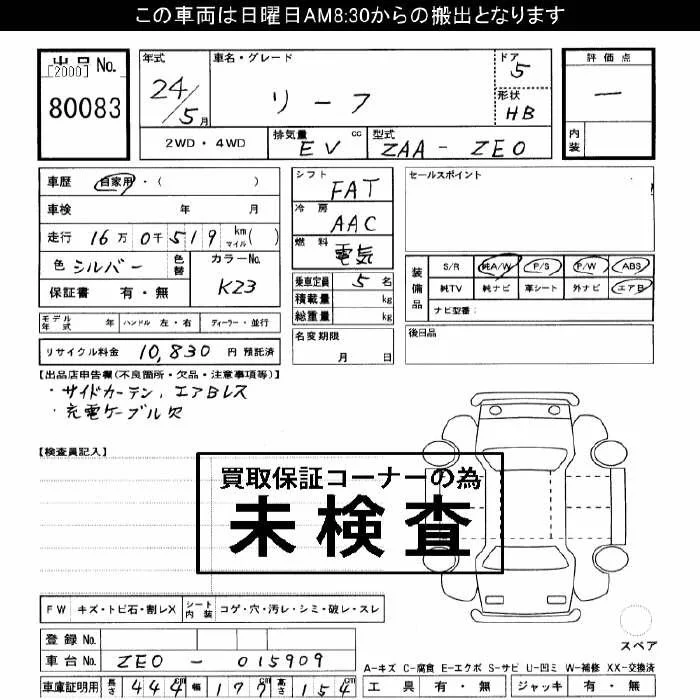 この車両は日曜日AM8:30からの搬出となります
出品No.
[2000]
80083
年式
24/5月
車名・グレード
リーフ
ドア
5
形状
HB
評価点
―
内装
2WD・4WD
排気量 cc
EV
型式
ZAA-ZE0
車歴 自家用・( )
車検 年 月
走行 16万0千519km マイル( )
色 シルバー
色替
カラーNo.
K23
保証書 有・無
モデル年式 年 ハンドル 左・右 ディーラー・並行
リサイクル料金 10,830 円 預託済
シフト
FAT
冷房
AAC
燃料
電気
乗車定員 5 名
積載量 kg
総重量 kg
名変期限
月 日
セールスポイント
装備品
S/R 純A/W P/S P/W ABS
純TV 純ナビ 革シート 外ナビ エアB
ナビ型番:
後日品
【出品店申告欄(不良箇所・欠品・注意事項等)】
・サイドカーテン,エアBレス
・充電ケーブル欠
【検査員記入】
買取保証コーナーの為
未検査
FW キズ・トビ石・割レX シート内装 コゲ・穴・汚レ・シミ・破レ・スレ
登録No.
車台No. ZE0-015909
車庫証明用 長さ 444cm 幅 177cm 高さ 154cm
スペア
A-キズ C-腐食 E-エクボ S-サビ U-凹ミ W-補修 XX-交換済
工具 有・無 ジャッキ 有・無